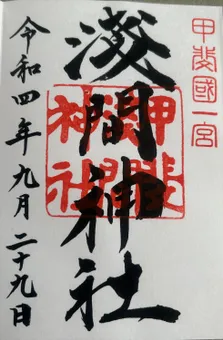 甲斐國一宮
淺間神社
令和四年九月二十九日